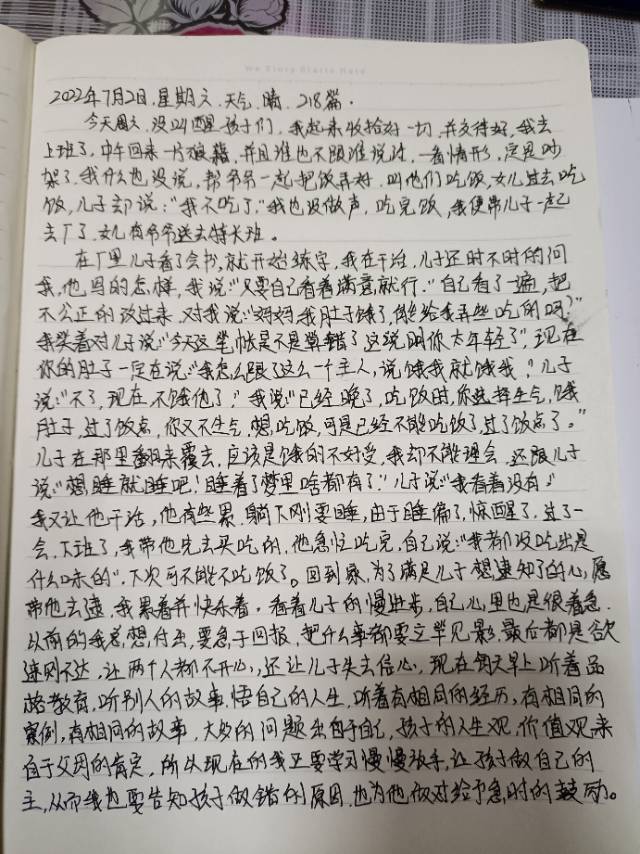 We Story Starts Here
2022年7月2日.星期六.天气.晴.218篇.
今天周六.没叫醒孩子们,我起来收拾好一切.并交待好,我去
上班了,中午回来一片狼藉,并且谁也不跟谁说话,一看情形,定是吵
架了.我什么也没说,帮爷爷一起把饭弄好.叫他们吃饭,女儿过去吃
饭,儿子却说:"我不吃了."我也没做声.吃完饭,我便带儿子一起
去厂了.女儿有爷爷送去特长班.
在厂里儿子看了会书,就开始练字,我在干活,儿子还时不时的问
我,他写的怎样,我说:"只要自己看着满意就行."自己看了一遍,把
不公正的改过来.对我说:"妈妈,我肚子饿了,能给我弄些吃的吗?"
我笑着对儿子说:"今天这笔帐是不是算错了这说明你太年轻了",现在
你的肚子一定在说:"我怎么跟了这么一个主人,说饿我就饿我?儿子
说:"不了,现在不饿他了!"我说"已经晚了,吃饭时,你选择生气,饿
肚子,过了饭点,你又不生气.想吃饭,可是已经不能吃饭了过了饭点了。"
儿子在那里翻来覆去,应该是饿的不好受,我却不能理会,还跟儿子
说:"想睡就睡吧!睡着了梦里啥都有了."儿子说"我看着没有."
我又让他干活,他有些累.躺下刚要睡,由于睡偏了,惊醒了.过了一
会.下班了,我带他先去买吃的,他急忙吃完,自己说:"我都没吃出是
什么味的".下次可不能不吃饭了。回到家,为了满足儿子想逮知了的心,愿
带他去逮.我累着并快乐着.看着儿子的慢进步,自己心里也是很着急.
从前的我总想,付出,要急于回报,把什么事都要立竿见影,最后都是欲
速则不达,让两个人都不开心,还让儿子失去信心,现在每天早上听着品
格教育,听别人的故事,悟自己的人生,听着有相同的经历,有相同的
案例,有相同的故事,大致的问题出自于自己,孩子的人生观.价值观,来
自于父母的肯定,所以现在的我正要学习慢慢放手,让孩子做自己的
主,从而我也要告知孩子做错的原因,也为他做对给予急时的鼓励。